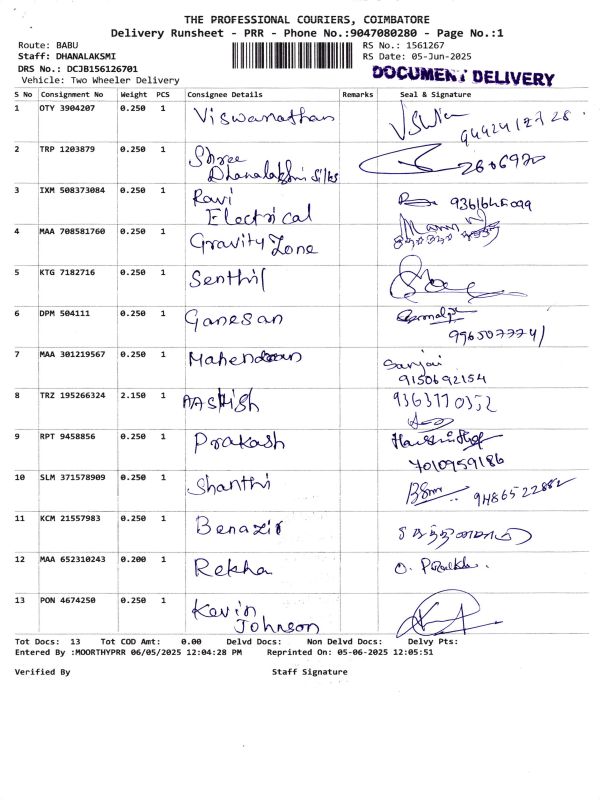 THE PROFESSIONAL COURIERS, COIMBATORE
Delivery Runsheet - PRR - Phone No.:9047080280 - Page No.:1
Route: BABU RS No.: 1561267
Staff: DHANALAKSMI RS Date: 05-Jun-2025
DRS No.: DCJB156126701 DOCUMENT DELIVERY
Vehicle: Two Wheeler Delivery
S No Consignment No Weight PCS Consignee Details Remarks Seal & Signature
1 OTY 3904207 0.250 1 Viswanathan
9442412728
2 TRP 1203879 0.250 1 Shree
Dhanalakshmi Silks 2606970
3 IXM 508373084 0.250 1 Ravi
Electrical
4 MAA 708581760 0.250 1 Gravity Zone
5 KTG 7182716 0.250 1 Senthil
6 DPM 504111 0.250 1 Ganesan
9965077741
7 MAA 301219567 0.250 1 Mahendran Sanjai
9150692154
8 TRZ 195266324 2.150 1 AASHish 9363770352
9 RPT 9458856 0.250 1 Prakash
7010959186
10 SLM 371578909 0.250 1 Shanthi 9486522882
11 KCM 21557983 0.250 1 Benazir
12 MAA 652310243 0.200 1 Rekha
13 PON 4674250 0.250 1 Kevin
Johnson
Tot Docs: 13 Tot COD Amt: 0.00 Delvd Docs: Non Delvd Docs: Delvy Pts:
Entered By :MOORTHYPRR 06/05/2025 12:04:28 PM Reprinted On: 05-06-2025 12:05:51
Verified By Staff Signature